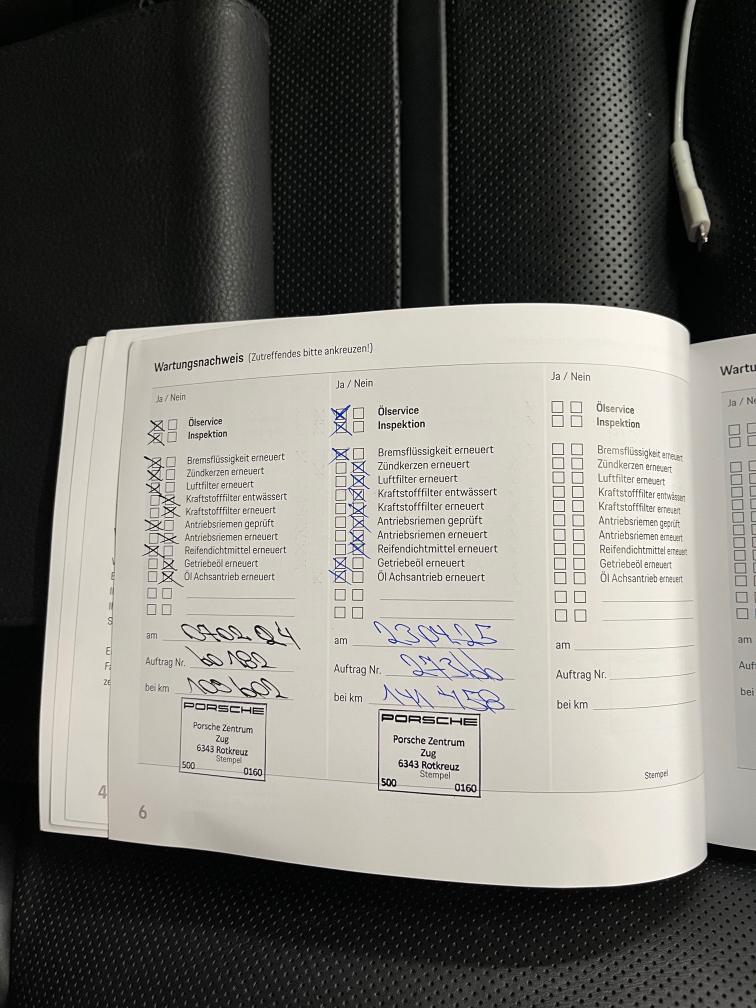 Wartungsnachweis (Zutreffendes bitte ankreuzen!)
Ja / Nein
Ölservice
Inspektion
Bremsflüssigkeit erneuert
Zündkerzen erneuert
Luftfilter erneuert
Kraftstofffilter entwässert
Kraftstofffilter erneuert
Antriebsriemen geprüft
Antriebsriemen erneuert
Reifendichtmittel erneuert
Getriebeöl erneuert
Öl Achsantrieb erneuert
am 07.02.24
Auftrag Nr. 60182
bei km
PORSCHE
Porsche Zentrum
Zug
6343 Rotkreuz
Stempel
500 0160
Ja / Nein
Ölservice
Inspektion
Bremsflüssigkeit erneuert
Zündkerzen erneuert
Luftfilter erneuert
Kraftstofffilter entwässert
Kraftstofffilter erneuert
Antriebsriemen geprüft
Antriebsriemen erneuert
Reifendichtmittel erneuert
Getriebeöl erneuert
Öl Achsantrieb erneuert
am 23.04.25
Auftrag Nr.
bei km 141 458
PORSCHE
Porsche Zentrum
Zug
6343 Rotkreuz
Stempel
500 0160
Ja / Nein
Ölservice
Inspektion
Bremsflüssigkeit erneuert
Zündkerzen erneuert
Luftfilter erneuert
Kraftstofffilter entwässert
Kraftstofffilter erneuert
Antriebsriemen geprüft
Antriebsriemen erneuert
Reifendichtmittel erneuert
Getriebeöl erneuert
Öl Achsantrieb erneuert
am
Auftrag Nr.
bei km
Stempel
6
4
Wartu
Ja / Ne
am
Auft
bei